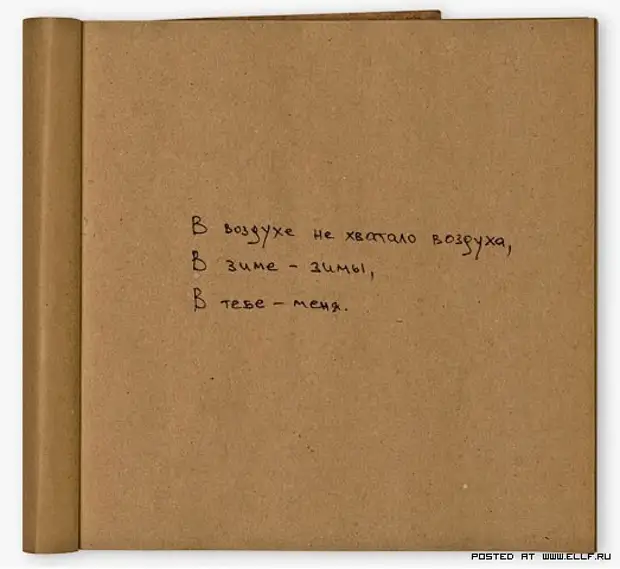 В воздухе не хватало воздуха,
В зиме – зимы,
В тебе – меня.
POSTED AT WWW.ELLF.RU